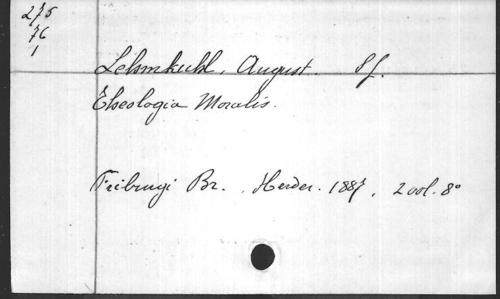 275
76
1
Lehmkuhl, August. Sf.
Theologia Moralis.
Friburgi Br. . Herder. 1887, 2 vol. 8°